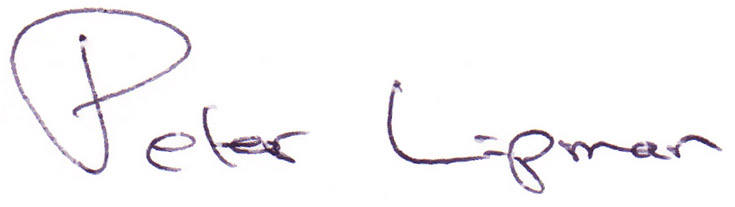 Peter Lipman